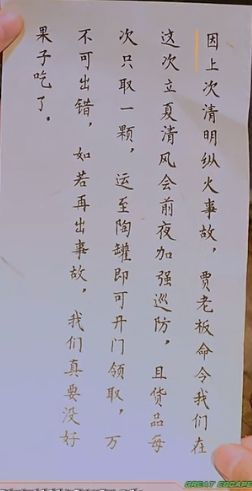 因上次清明纵火事故，贾老板命令我们在
这次立夏清风会前夜加强巡防，且货品每
次只取一颗，运至陶罐即可开门领取，万
不可出错，如若再出事故，我们真要没好
果子吃了。
GREAT ESCAPE